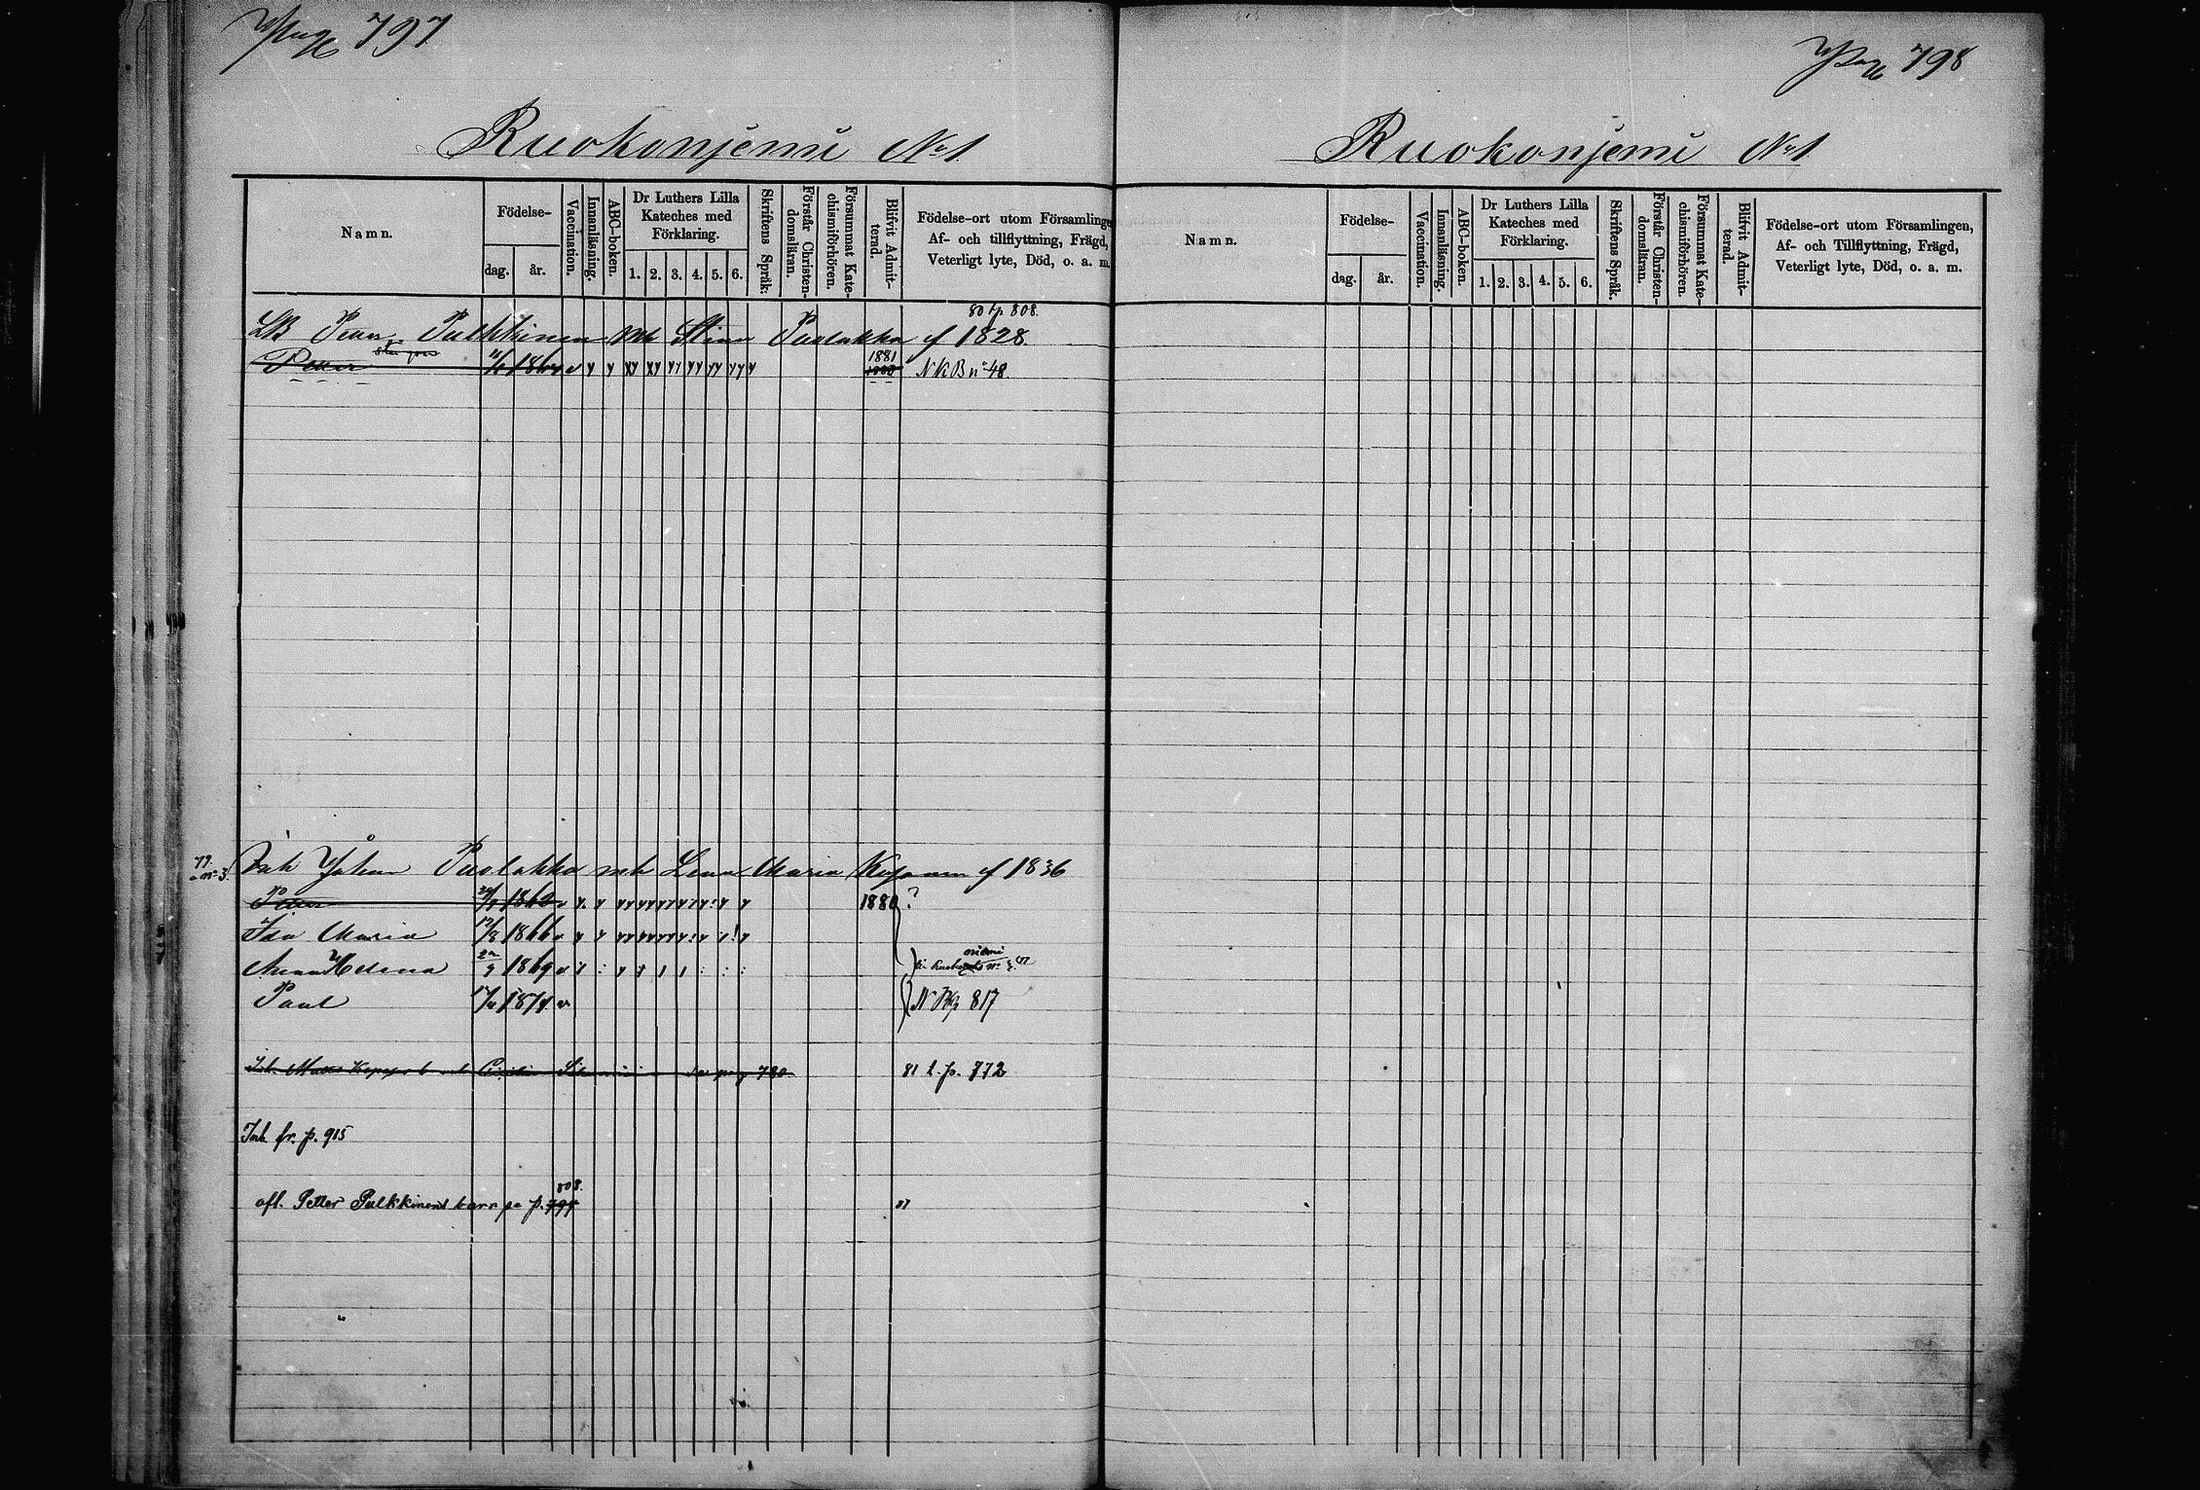 Pag 797
Ruokonjemi No 1
Namn.
Födelse-
dag.
år.
Vaccination.
Innanläsning.
ABC-boken.
Dr Luthers Lilla
Kateches med
Förklaring.
1. 2. 3. 4. 5. 6.
Skriftens Språk.
Förstår Christen-
domsläran.
Försummat Kate-
chismiförhören.
Blifvit Admit-
terad.
Födelse-ort utom Församlinge
Af- och tillflyttning, Frägd,
Veterligt lyte, Död, o. a. m.
80 p. 808.
Pulkkinen mh Stina Puolakka f 1828
Petter 1864 1881 NKB no 48
77.
no 3.
Inh Johan Puolakka mh Lena Maria f 1836
Petter 1862 1880 ?
Ida Maria 17/3 1866
Anna Helena 1869
Paul 1874 817
pag 780 81 l. p. 772
Inh fr. p. 915
afl. Petter Pulkkinens barn pa p. 797 808. 81
Pag 798
Ruokonjemi No 1
Namn.
Födelse-
dag.
år.
Vaccination.
Innanläsning.
ABC-boken.
Dr Luthers Lilla
Kateches med
Förklaring.
1. 2. 3. 4. 5. 6.
Skriftens Språk.
Förstår Christen-
domsläran.
Försummat Kate-
chismiförhören.
Blifvit Admit-
terad.
Födelse-ort utom Församlingen,
Af- och Tillflyttning, Frägd,
Veterligt lyte, Död, o. a. m.